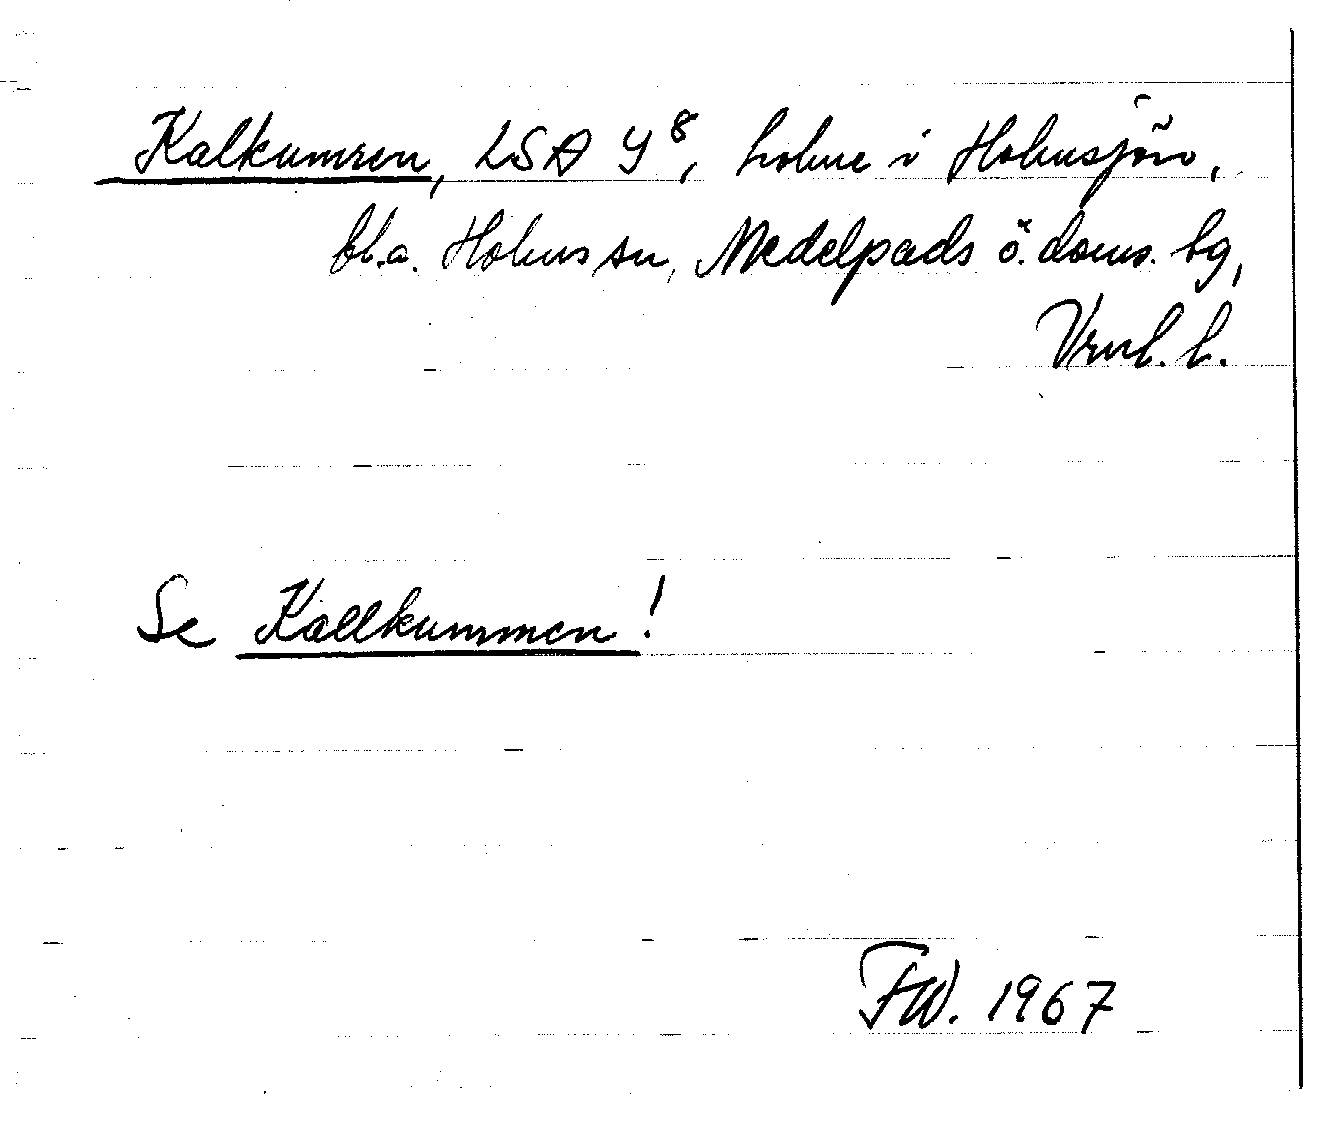 Kalkumren, LSA Y8, holme i Holmsjön,
bl.a. Holms sn, Medelpads ö. doms. hg,
Vrnl. l.
Se Kallkummen!
FW. 1967